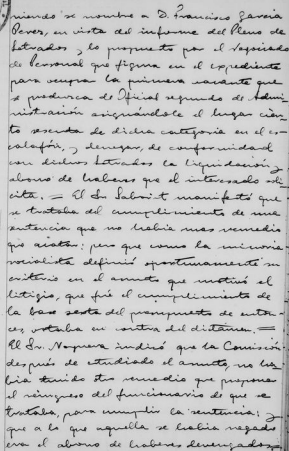 niendo se nombre a D. Francisco García
Peres, en vista del informe del Pleno de
Letrados y lo propuesto por el Negociado
de Personal que figura en el expediente
para ocupar la primera vacante que
se produzca de Oficial segundo de Admi-
nistración asignándole el lugar cien-
to sesenta de dicha categoría en el es-
calafón, y denegar, de conformidad
con dichos Letrados la liquidación y
abono de haberes que el interesado soli-
cita. = El Sr. Saborit manifestó que
se trataba del cumplimiento de una
sentencia que no había mas remedio
que acatar; pero que como la minoria
socialista definió oportunamente su
criterio en el asunto que motivó el
litigio, que fué el cumplimiento de
la base sexta del presupuesto de enton-
ces, votaba en contra del dictamen. =
El Sr. Noguera indicó que la Comisión
después de estudiado el asunto, no ha-
bía tenido otro remedio que proponer
el reingreso del funcionario de que se
trataba, para cumplir la sentencia; y
que a lo que aquella se había negado
era el abono de haberes devengados,